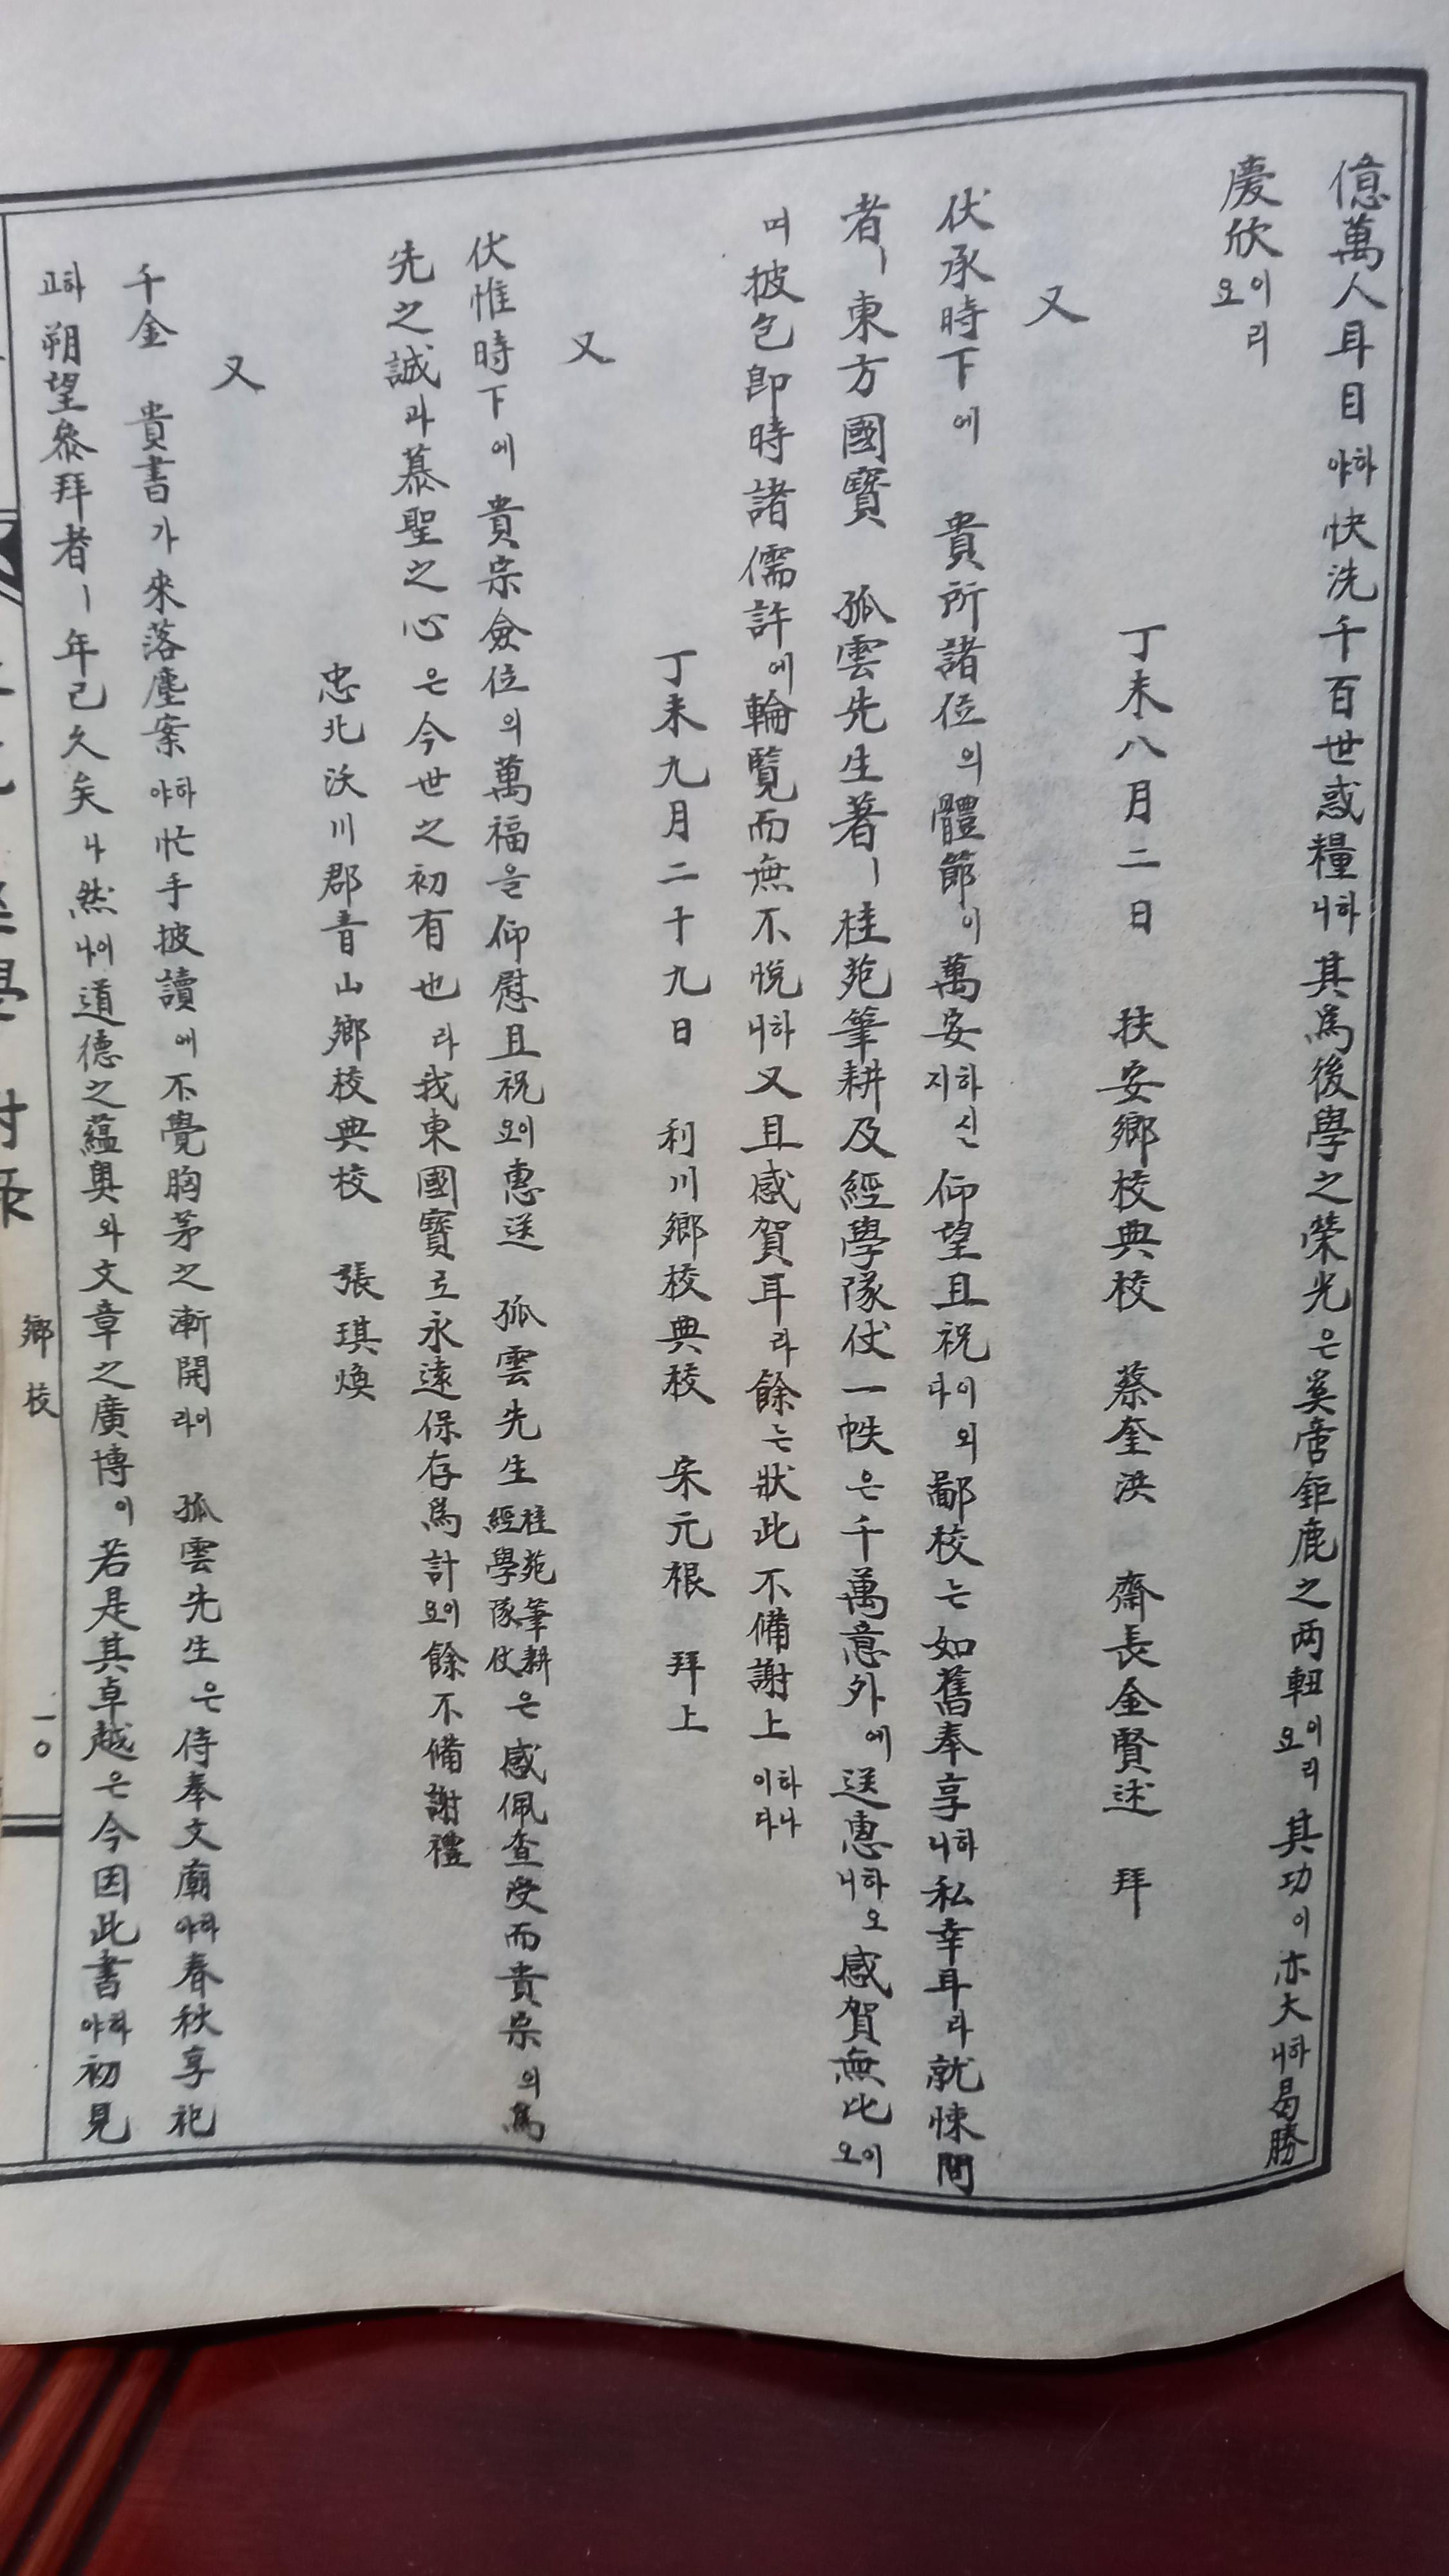 億萬人耳目하야快洗千百世惑糧하니其爲後學之榮光은奚啻鉅鹿之两軔이리요其功이亦大하니曷勝
慶欣이리요
丁未八月二日 扶安鄕校典校 蔡奎洪 齋長金賢述 拜
又
伏承時下에 貴所諸位의體節이萬安하신지仰望且祝이외다鄙校는如舊奉享하니私幸耳라就悚間
者ㅣ東方國寶 孤雲先生著ㅣ桂苑筆耕及經學隊仗一帙은千萬意外에送惠하오니感賀無比이오
며披包卽時諸儒許에輪覽而無不悅하니又且感賀耳라餘는狀此不備謝上하나이다
丁未九月二十九日 利川鄕校典校 宋元根 拜上
又
伏惟時下에 貴宗僉位의萬福을仰慰且祝이오惠送 孤雲先生桂苑筆耕經學隊仗은感佩查受而貴宗의爲
先之誠과慕聖之心은今世之初有也라我東國寶로永遠保存爲計이오餘不備謝禮
忠北沃川郡靑山鄕校典校 張琪煥
又
千金 貴書가來落塵案하야忙手披讀에不覺胸茅之漸開이라 孤雲先生은侍奉文廟하야春秋享祀
하고朔望參拜者ㅣ年已久矣나然이나道德之蘊奧와文章之廣博이若是其卓越은今因此書하야初見
鄕校 一〇